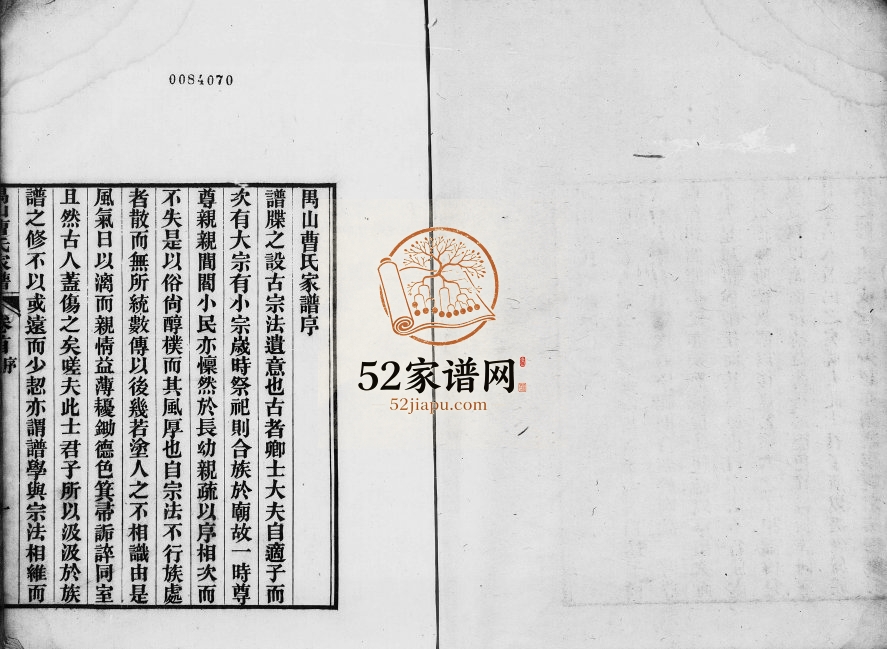 0084070
禺山曹氏家譜序
譜牒之設古宗法遺意也古者卿士大夫自適子而
次有大宗有小宗歲時祭祀則合族於廟故一時尊
尊親親閭閻小民亦懍然於長幼親疏以序相次而
不失是以俗尙醇樸而其風厚也自宗法不行族處
者散而無所統數傳以後幾若塗人之不相識由是
風氣日以漓而親情益薄耰鋤德色箕帚詬誶同室
且然古人蓋傷之矣嗟夫此士君子所以汲汲於族
譜之修不以或遠而少恝亦謂譜學與宗法相維而
禺山曹氏家譜 卷首 序
52家谱网
52jiapu.com